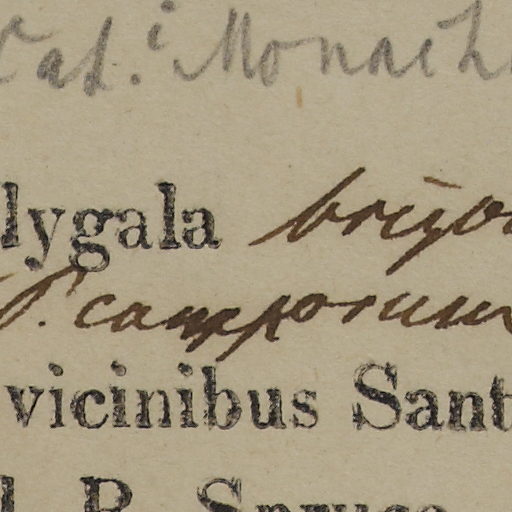 Cat. Monach
lygala brizo
P. camporum
vicinibus Sant
R. Spruce